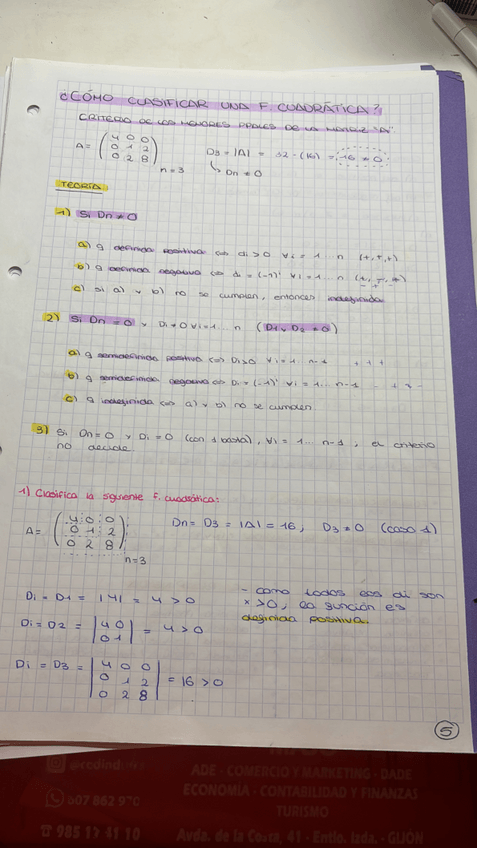 ¿CÓMO CLASIFICAR UNA F. CUADRÁTICA?
CRITERIO DE LOS MENORES PPALES DE LA MATRIZ "A"
A = (4 0 0
0 1 2
0 2 8) n = 3
D3 = |A| = 32 - (16) = 16 ≠ 0
↳ Dn ≠ 0
TEORÍA:
1) Si Dn ≠ 0
a) q definida positiva ⇔ di > 0 ∀i = 1 ... n (+,+,+)
b) q definida negativa ⇔ di = (-1)ⁱ ∀i = 1 ... n
c) si a) y b) no se cumplen, entonces indefinida
2) Si Dn = 0 y Di ≠ 0 ∀i = 1 ... n (D1 y D2 ≠ 0)
a) q semidefinida positiva ⇔ Di > 0 ∀i = 1 ... n-1 + + +
b) q semidefinida negativa ⇔ Di = (-1)ⁱ ∀i = 1 ... n-1 - + -
c) q indefinida ⇔ a) y b) no se cumplen
3) Si Dn = 0 y Di = 0 (con 1 basta), ∀i = 1 ... n-1, el criterio
no decide
1) Clasifica la siguiente F. cuadrática:
A = (4 0 0
0 1 2
0 2 8) n = 3
Dn = D3 = |A| = 16, D3 ≠ 0 (caso 1)
Di = D1 = |4| = 4 > 0
Di = D2 = |4 0
0 1| = 4 > 0
Di = D3 = |4 0 0
0 1 2
0 2 8| = 16 > 0
- como todos los di son
> 0, la función es
definida positiva.
5
607 862 970
ADE - COMERCIO Y MARKETING - DADE
ECONOMÍA - CONTABILIDAD Y FINANZAS
TURISMO
Avda. de la Costa, 41 - Entlo. Izda. - GIJÓN